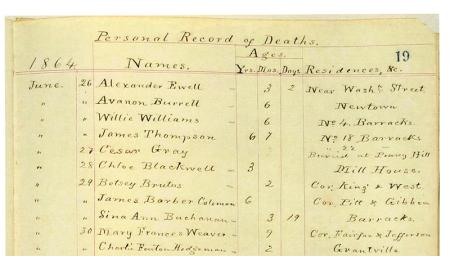 Personal Record of Deaths.
19
1864 Names. Ages. Yrs. Mos. Days Residences, &c.
June. 26 Alexander Ewell — 3 2 Near Washn. Street
" " Avanon Burrell — 6 Newtown
" " Willie Williams — 6 No 4. Barracks.
" " James Thompson 6 7 No 18 Barracks
" 27 Cesar Gray " 22 "
Buried at Penny Hill
" 28 Chloe Blackwell — 3 Mill House.
" 29 Betsey Brutus — 2 Cor. King & West.
" " James Barber Coleman 6 Cor. Pitt & Gibbon
" " Sina Ann Buchanan — 3 19 Barracks.
" 30 Mary Frances Weaver — 9 Cor. Fairfax & Jefferson
" " Charls Fenton Hodgeman — 2 Grantville